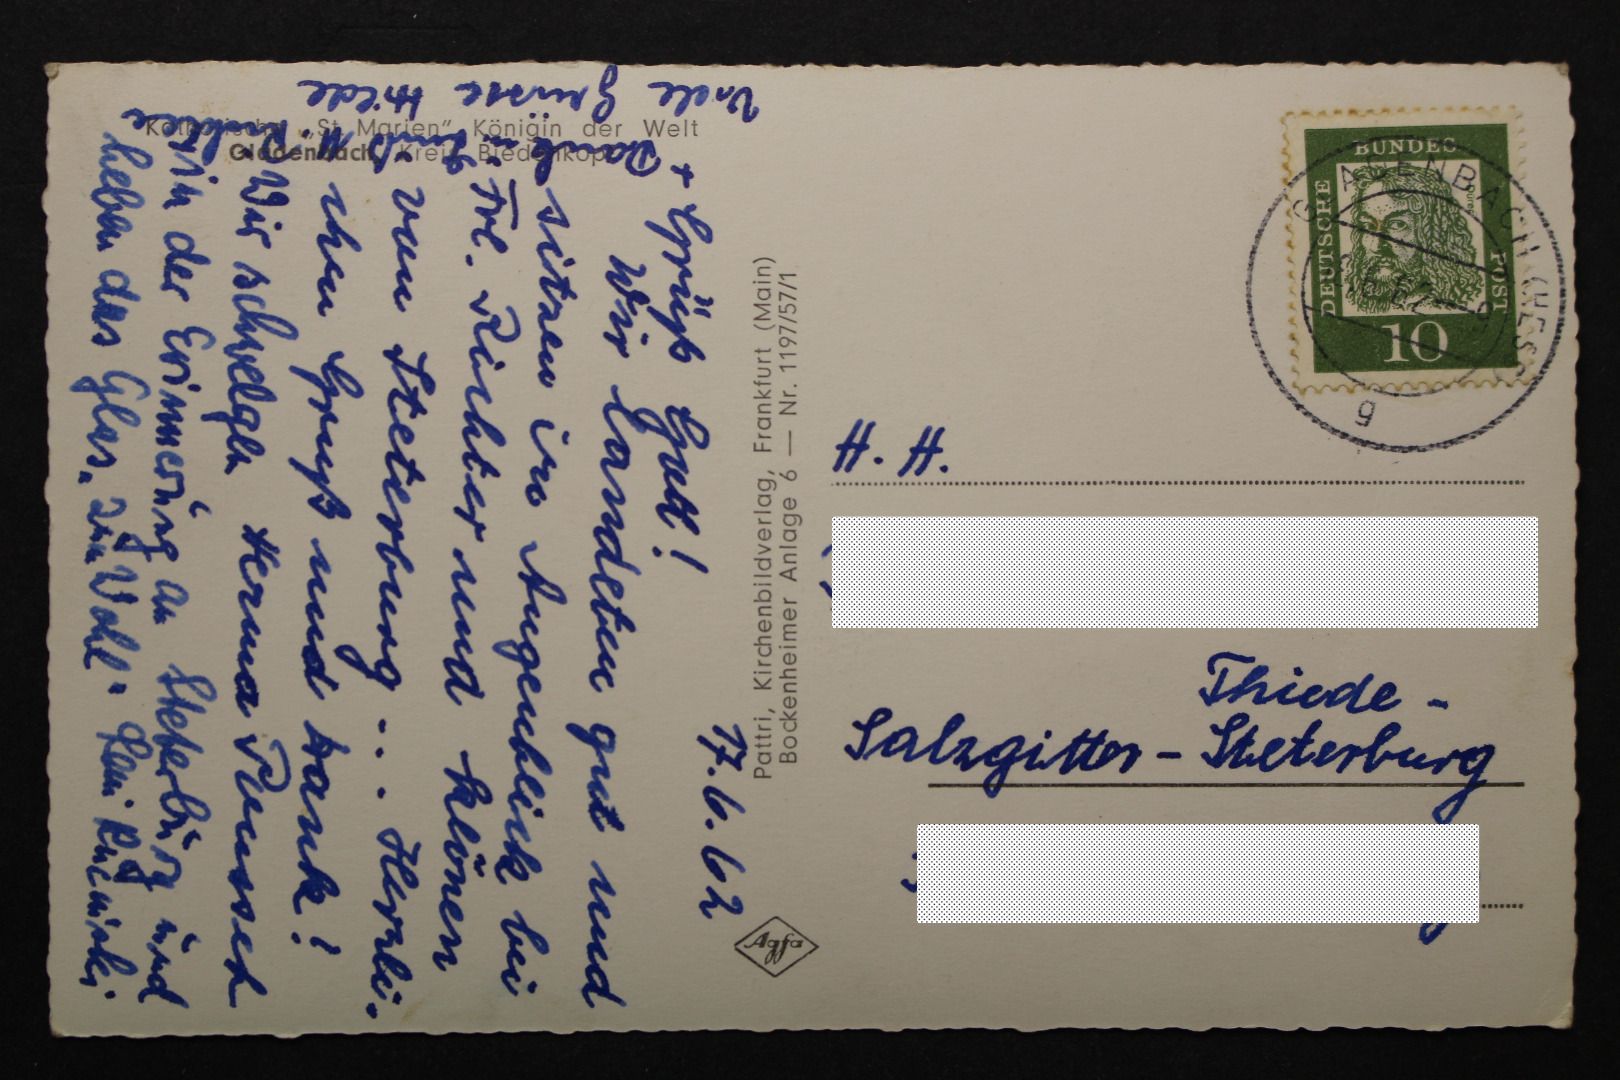 Katholische „St. Marien“ Königin der Welt
Gladenbach, Kreis Biedenkopf
17. 6. 62
+ Grüß Gott!
Wir landeten gut und
sitzen im Augenblick bei
Frl. Richter und klönen
von Steterburg... Herzli-
chen Gruß und Dank!
Wir schwelgen
in der Erinnerung an Steterburg und
heben das Glas. Zum Wohl.
Viele Grüsse
Dank u. Gruß
Pattri, Kirchenbildverlag, Frankfurt (Main)
Bockenheimer Anlage 6 — Nr. 1197/57/1
Agfa
DEUTSCHE BUNDESPOST
10
GLADENBACH (HESS)
g
H. H.
Thiede -
Salzgitter - Steterburg